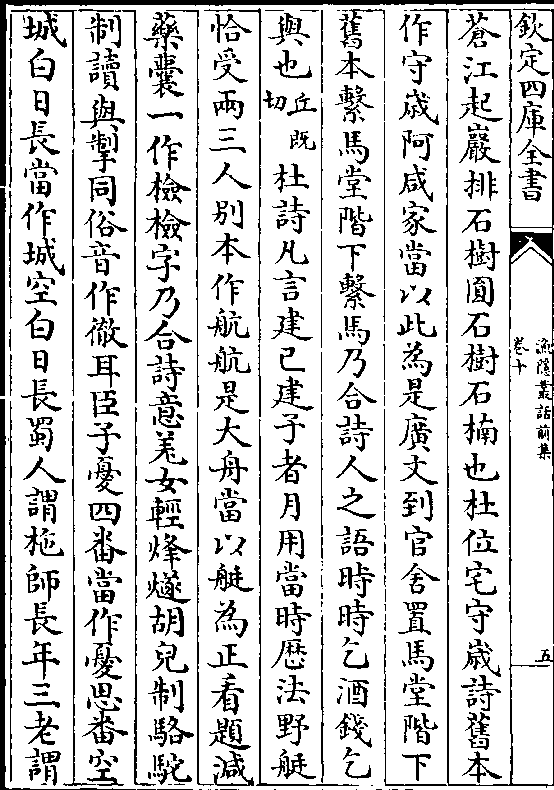 欽定四庫全書
漁隱叢話前集
卷十
五
蒼江起巖排石樹圎石樹石楠也杜位宅守歳詩舊本
作守歳阿咸家當以此為是廣文到官舍置馬堂階下
舊本繫馬堂階下繫馬乃合詩人之語時時乞酒錢乞
與也丘既切杜詩凡言建已建子者月用當時厯法野艇
恰受兩三人别本作航航是大舟當以艇為正看題減
藥囊一作檢檢字乃合詩意羌女輕烽燧胡兒制駱駝
制讀與掣同俗音作徹耳臣子憂四畨當作憂思畨空
城白日長當作城空白日長蜀人謂柂師長年三老謂